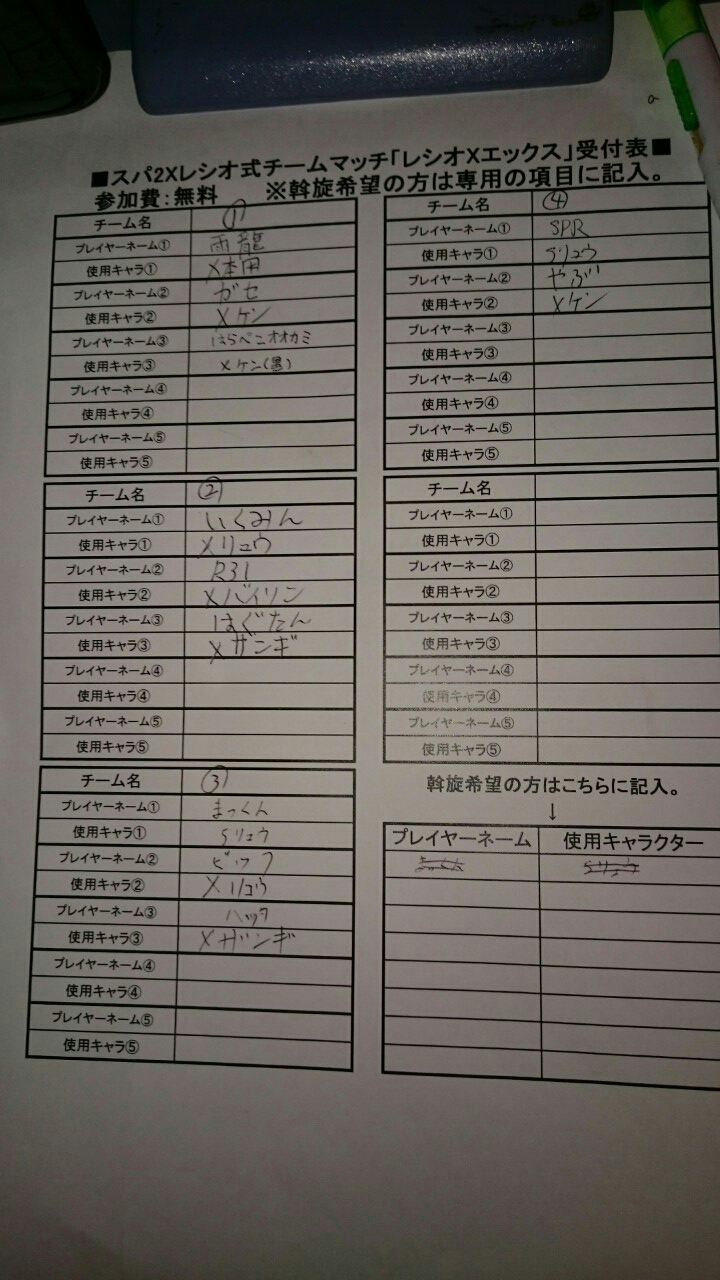 ■スパ2Xレシオ式チームマッチ「レシオXエックス」受付表■
参加費:無料 ※斡旋希望の方は専用の項目に記入。
チーム名 ①
プレイヤーネーム① 雨龍
使用キャラ① X本田
プレイヤーネーム② ガセ
使用キャラ② Xケン
プレイヤーネーム③ はらぺこオオカミ
使用キャラ③ Xケン(黒)
プレイヤーネーム④
使用キャラ④
プレイヤーネーム⑤
使用キャラ⑤
チーム名 ②
プレイヤーネーム① いくみん
使用キャラ① Xリュウ
プレイヤーネーム② R31
使用キャラ② Xバイソン
プレイヤーネーム③ はぐたん
使用キャラ③ Xザンギ
プレイヤーネーム④
使用キャラ④
プレイヤーネーム⑤
使用キャラ⑤
チーム名 ③
プレイヤーネーム① まっくん
使用キャラ① Sリュウ
プレイヤーネーム②
使用キャラ② Xリュウ
プレイヤーネーム③ ハック
使用キャラ③ Xザンギ
プレイヤーネーム④
使用キャラ④
プレイヤーネーム⑤
使用キャラ⑤
チーム名 ④
プレイヤーネーム① SPR
使用キャラ① Sリュウ
プレイヤーネーム② やぶ
使用キャラ② Xケン
プレイヤーネーム③
使用キャラ③
プレイヤーネーム④
使用キャラ④
プレイヤーネーム⑤
使用キャラ⑤
チーム名
プレイヤーネーム①
使用キャラ①
プレイヤーネーム②
使用キャラ②
プレイヤーネーム③
使用キャラ③
プレイヤーネーム④
使用キャラ④
プレイヤーネーム⑤
使用キャラ⑤
斡旋希望の方はこちらに記入。
↓
プレイヤーネーム 使用キャラクター
まっくん Sリュウ